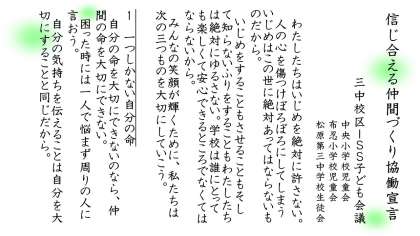 信じ合える仲間づくり協働宣言
三中校区ISS子ども会議
中央小学校児童会
布忍小学校児童会
松原第三中学校生徒会
わたしたちはいじめを絶対に許さない。
人の心を傷つけぼろぼろにしてしまう
いじめはこの世に絶対あってはならないも
のだから。
いじめをすることもさせることもそし
て知らないふりをすることもわたしたち
は絶対にゆるさない。学校は誰にとって
も楽しくて安心できるところでなくては
ならないから。
みんなの笑顔が輝くために、私たちは
次の三つものを大切にしていこう。
1 一つしかない自分の命
自分の命を大切にできないのなら、仲
間の命を大切にできない。
困った時には一人で悩まず周りの人に
言おう。
自分の気持ちを伝えることは自分を大
切にすることと同じだから。